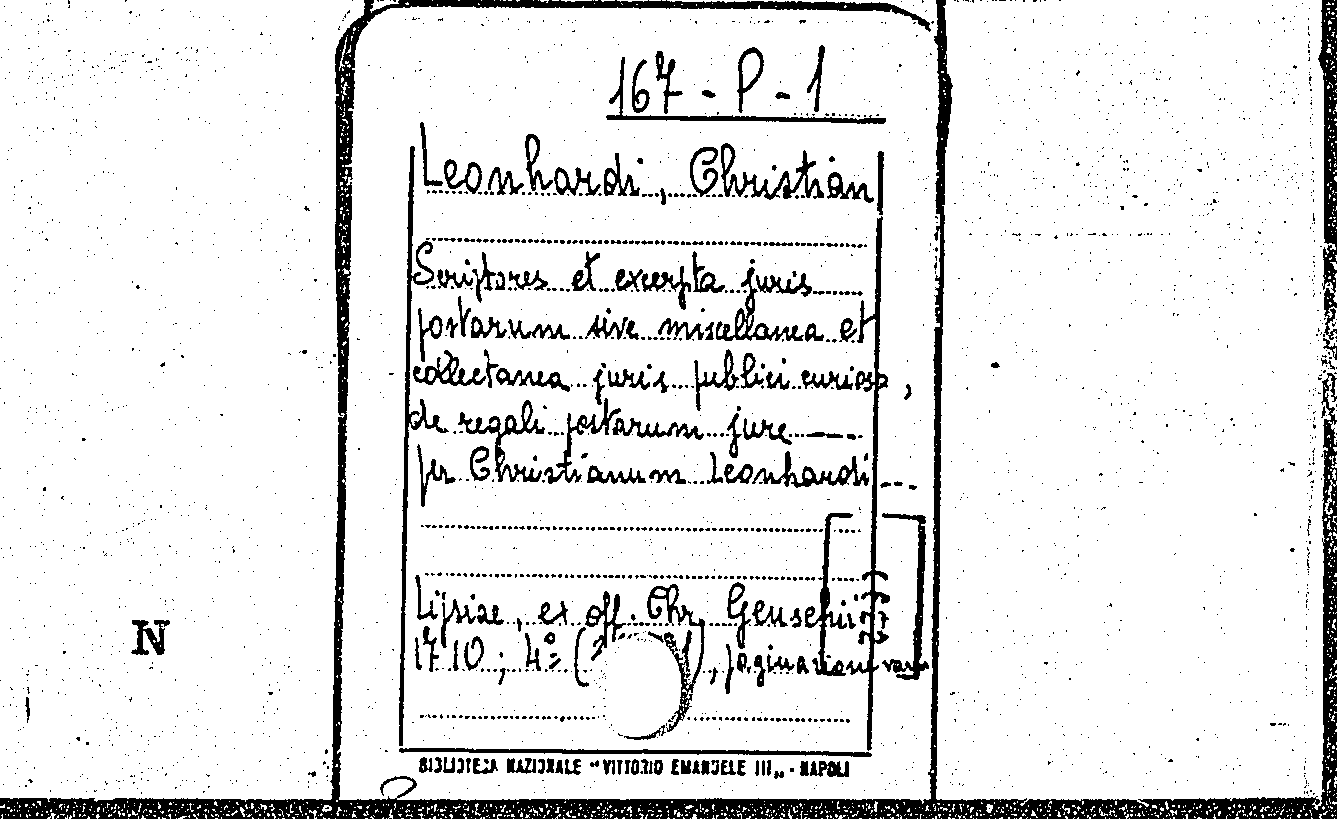 167 - P - 1
Leonhardi, Christian
Scriptores et excerpta juris
postarum sive miscellanea et
collectanea juris publici curiosa,
de regali postarum jure ----
per Christianum Leonhardi ---
Lipsiae, ex off. Chr. Geuschii
1710; 4º (), paginazioni varie
N
BIBLIOTECA NAZIONALE "VITTORIO EMANUELE III„ - NAPOLI